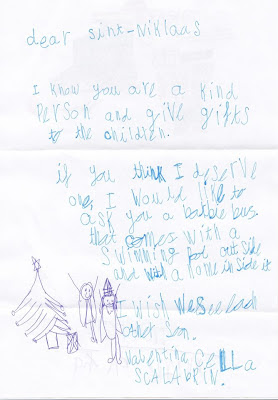 dear sint-Niklaas
I know you are a kind
Person and give gifts
to the children.
if you think I deserve
one, I would like to
ask you a barbie bus.
that comes with a
swimming pool outside
and with a home inside it
I wish we see each
other son.
Valentina
SCALABRIN.